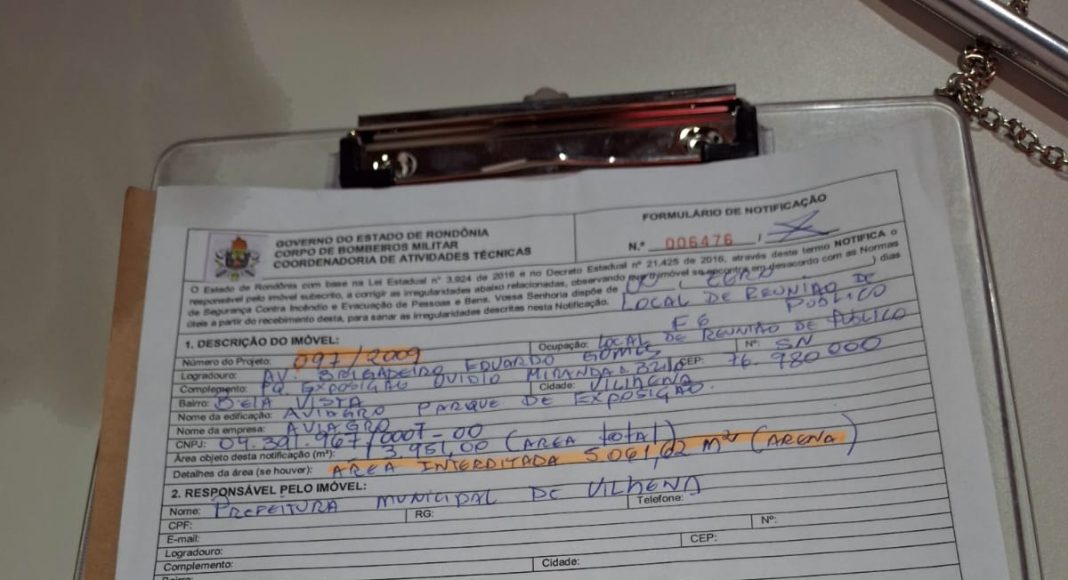 GOVERNO DO ESTADO DE RONDÔNIA
CORPO DE BOMBEIROS MILITAR
COORDENADORIA DE ATIVIDADES TÉCNICAS
FORMULÁRIO DE NOTIFICAÇÃO
N.º 006476 /
O Estado de Rondônia com base na Lei Estadual nº 3.924 de 2016 e no Decreto Estadual nº 21.425 de 2016, através deste termo NOTIFICA o
responsável pelo imóvel subscrito, a corrigir as irregularidades abaixo relacionadas, observando que o imóvel se encontra em desacordo com as Normas
de Segurança Contra Incêndio e Evacuação de Pessoas e Bens. Vossa Senhoria dispõe de 00 ( ZERO ) dias
úteis a partir do recebimento desta, para sanar as irregularidades descritas nesta Notificação.
LOCAL DE REUNIÃO DE PÚBLICO
1. DESCRIÇÃO DO IMÓVEL:
F6
Número do Projeto: 097/2009 Ocupação: LOCAL DE REUNIÃO DE PÚBLICO
Logradouro: AV. BRIGADEIRO EDUARDO GOMES Nº: SN
Complemento: PQ EXPOSIÇÃO OVIDIO MIRANDA BRITO CEP: 76.980000
Bairro: BELA VISTA Cidade: VILHENA
Nome da edificação: AVIAGRO PARQUE DE EXPOSIÇÃO.
Nome da empresa: AVIAGRO
CNPJ: 04.391.967/0007-00
Área objeto desta notificação (m²): 13.951,00 (AREA total)
Detalhes da área (se houver): AREA INTERDITADA 5.061,02 m² (ARENA)
2. RESPONSÁVEL PELO IMÓVEL:
Nome: PREFEITURA MUNICIPAL DE VILHENA Telefone:
CPF: RG:
E-mail: Nº:
Logradouro: CEP:
Complemento: Cidade:
Bairro: